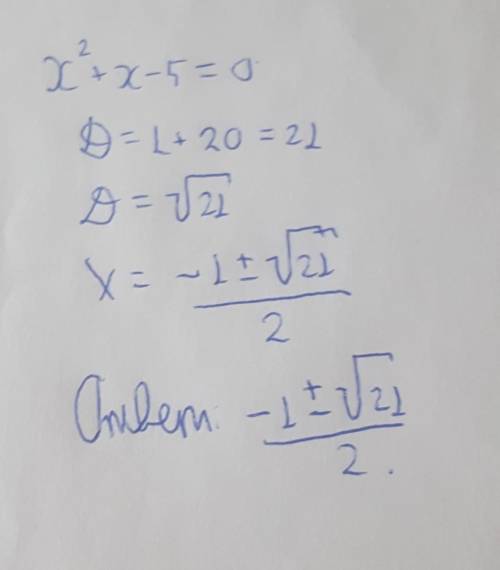 x² + x - 5 = 0
D = 1 + 20 = 21
D = √21
x = (-1 ± √21) / 2
Ответ: (-1 ± √21) / 2.